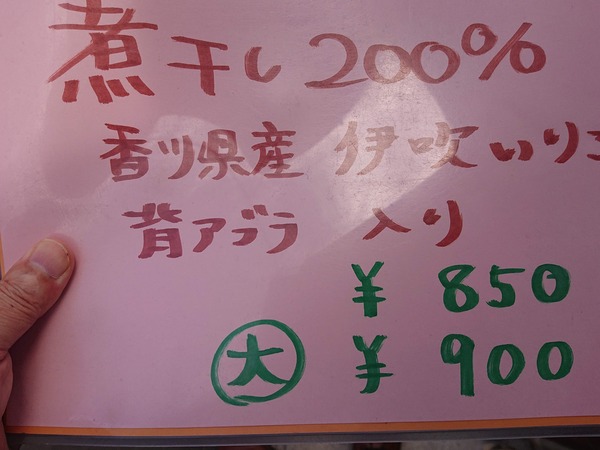 煮干し200%
香川県産 伊吹いりこ
背アブラ 入り
¥ 850
大 ¥ 900